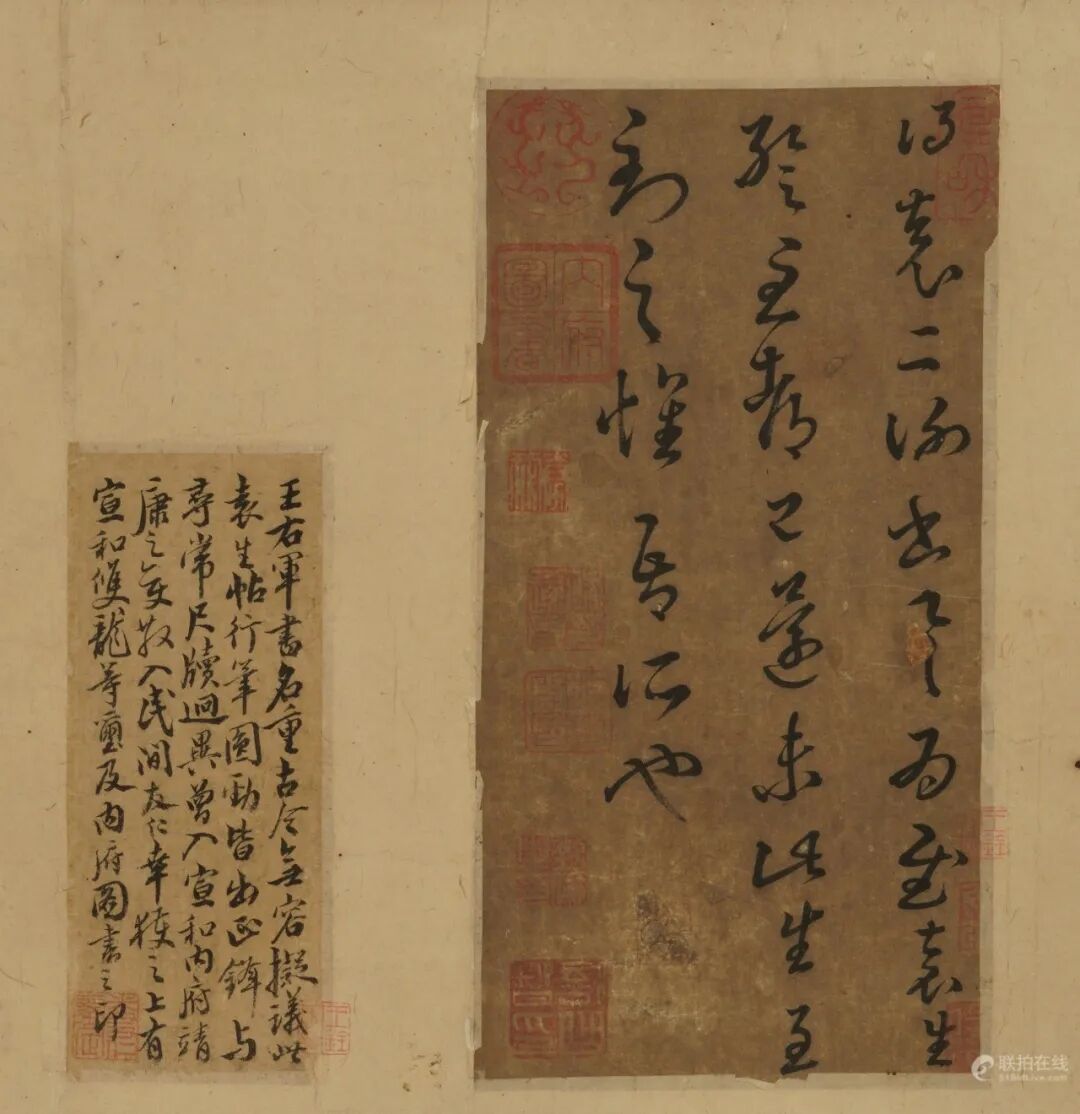 得袁二謝書具為慰袁生
暫至都已還未此生至
到之懷吾所也
內府圖書
王右軍書名重古今無容擬議此
袁生帖行筆圓勁皆出正鋒與
尋常尺牘迥異曾入宣和内府靖
康之變散入民間友仁幸獲之上有
宣和雙龍等璽及内府圖書之印
联拍在线
51bidlive.com